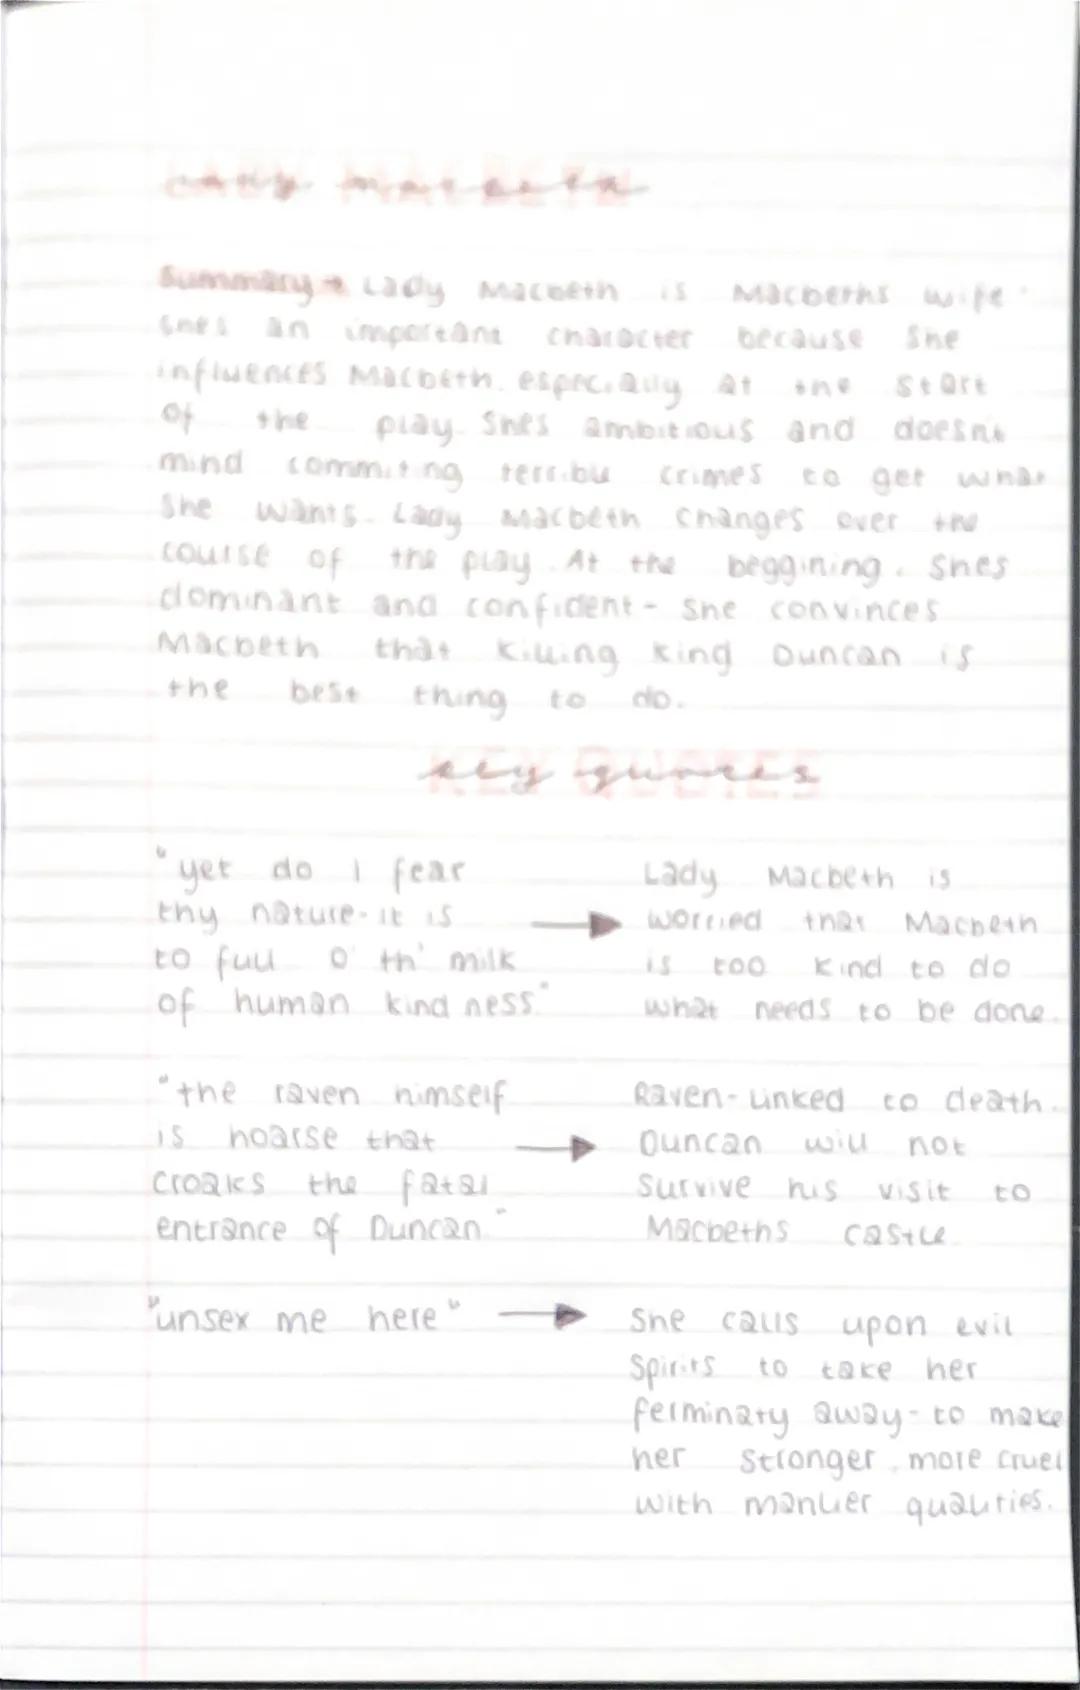 Lady Macbeth
Summary → Lady Macbeth is Macbeths wife.
Shes an important character because she
influences Macbeth. especially at the start
of the play. Shes ambitious and doesnt
mind commiting terrible crimes to get what
she wants. Lady Macbeth changes over the
course of the play. At the beggining. Shes
dominant and confident - She convinces
Macbeth that killing King Duncan is
the best thing to do.
key quotes
"yet do I fear
thy nature-it is
to full o' th' milk
of human kind ness."
Lady Macbeth is
worried that Macbeth
is too kind to do
what needs to be done.
"the raven himself
is hoarse that
croaks the fatal
entrance of Duncan."
Raven-linked to death.
Duncan will not
survive his visit to
Macbeths castle.
"unsex me here"
She calls upon evil
Spirits to take her
ferminaty away-to make
her stronger, more cruel
with manlier qualities.